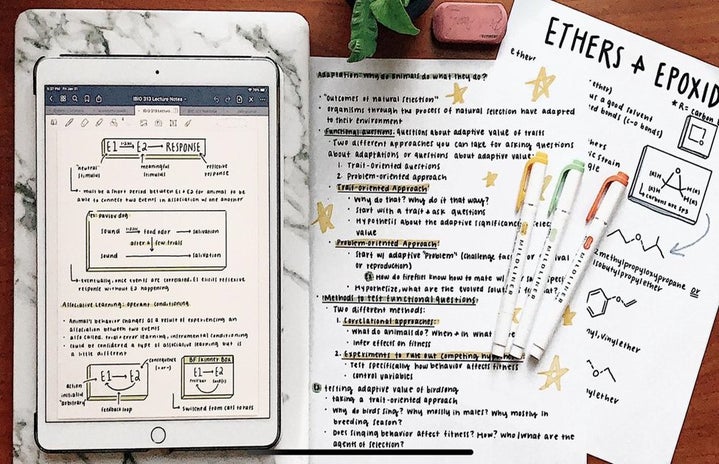 5:27 PM Fri Jan 31
70%
IBIO 313 Lecture Notes
E1 → E2 → RESPONSE
"neutral" stimulus
meaningful stimulus
reflexive response
must be a short period between E1 + E2 for animal to be
able to connect two events in association w/ one another
Ex: Pavlov dog:
sound → food odor → salivation
after a few trials
sound → salivation
Eventually, once events are correlated, E1 elicits reflexive
response without E2 happening
Associative Learning: Operant Conditioning
Animal's behavior changes as a result of experiencing an
association between two events
also called: trial + error learning, instrumental conditioning
could be considered a type of associative learning but is
a little different
consequence
(+ or -)
E1 → E2
action initiated "arbitrary"
feedback loop
BF Skinner Box
E1 → E2
switched from cats to rats
Adaptation: Why do animals do what they do?
"outcomes of natural selection"
organisms through the process of natural selection have adapted
to their environment
Functional questions: questions about adaptive value of traits
Two different approaches you can take for asking questions
about adaptations or questions about adaptive value:
1. Trait-oriented questions
2. Problem-oriented approach
Trait-oriented Approach
Why do that? Why do it that way?
Start with a trait + ask questions
Hypothesis about the adaptive significance
value
Problem-oriented Approach
Start w/ adaptive "Problem" (challenge
or reproduction)
How do fireflies know how to mate w/
Hypothesize, what are the evolved
Methods to test functional questions
Two different methods:
1. Correlational approaches:
what do animals do? When + in what
infer effects on fitness
2. Experiments to rule out competing
Test specifically how behavior affects fitness
control variables
testing adaptive value of birdsong
taking a trait-oriented approach
Why do birds sing? Why mostly in males? Why mostly in
breeding season?
Does singing behavior affect fitness? How? Who/what are the
agents of selection?
MILDLINER
MILDLINER
MILDLINER
ETHERS + EPOXID
ether
ether)
us a good solvent
ed bonds (C-O bonds)
*R= carbon
hers
ic strain
gle
carbons are sp3
2 methylpropyloxypropane or
isobutylpropylether
nyl, vinylether
nylether